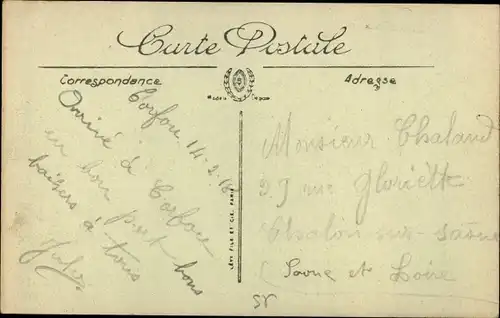 Carte Postale
Correspondance
Adresse
Corfou 14-2-16
Arrivé à Corfou
en bon port bons
baisers à tous
Jules
LÉVY FILS ET CIE, PARIS
Monsieur Chaland
27 rue Gloriette
Chalon-sur-Saône
(Saone et Loire